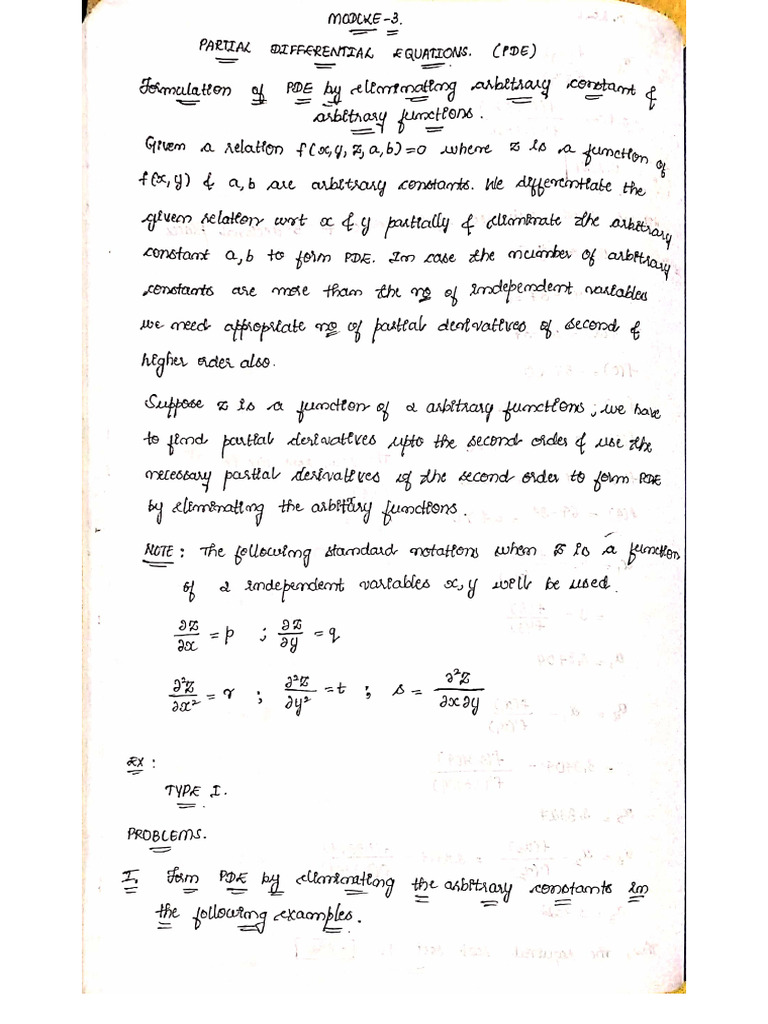 MODULE-3.
PARTIAL DIFFERENTIAL EQUATIONS. (PDE)
Formulation of PDE by eliminating arbitrary constant &
arbitrary functions.
Given a relation f(x,y,z,a,b)=0 where z is a function of
f(x,y) & a,b are arbitrary constants. We differentiate the
given relation wrt x & y partially & eliminate the arbitrary
constant a,b to form PDE. In case the number of arbitrary
constants are more than the no of independent variables
we need appropriate no of partial derivatives of second &
higher order also.
Suppose z is a function of 2 arbitrary functions; we have
to find partial derivatives upto the second order & use the
necessary partial derivatives of the second order to form PDE
by eliminating the arbitrary functions.
NOTE: The following standard notations when z is a function
of 2 independent variables x,y will be used.
∂z/∂x = p ; ∂z/∂y = q
∂²z/∂x² = r ; ∂²z/∂y² = t ; s = ∂²z/∂x∂y
EX:
TYPE I.
PROBLEMS.
I. Form PDE by eliminating the arbitrary constants in
the following examples.